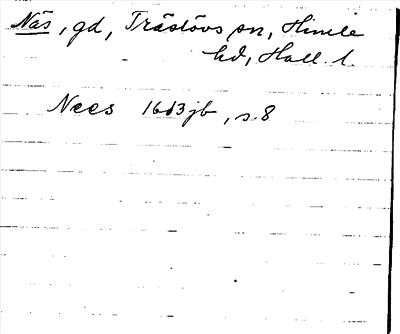 Näs, gd, Träslövs sn, Himle
hd, Hall. l.
Nees 1613 jb, s. 8